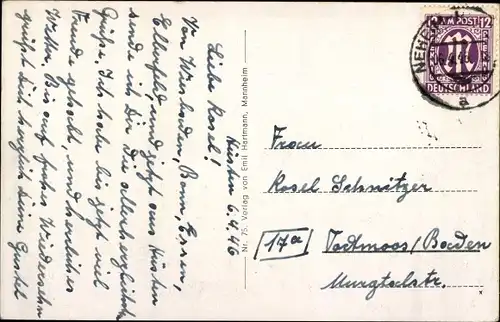 Hüsten 6.4.46
Liebe Rosel!
Von Wiesbaden, Bonn, Essen,
Elberfeld, und jetzt aus Hüsten
sende ich Dir die allerherzlichsten
Grüße. Ich habe bis jetzt viel
Freude gehabt, und herrliches
Wetter. Bis auf frohes Wiedersehn
grüßt Dich herzlich Deine Gustel
Nr. 75. Verlag von Emil Hartmann, Mannheim
12 AM POST 12
PFENNIG
DEUTSCHLAND
NEHEIM
a
Frau
Rosel Schnitzer
17a Todtmoos/Baden
Murgtalstr.